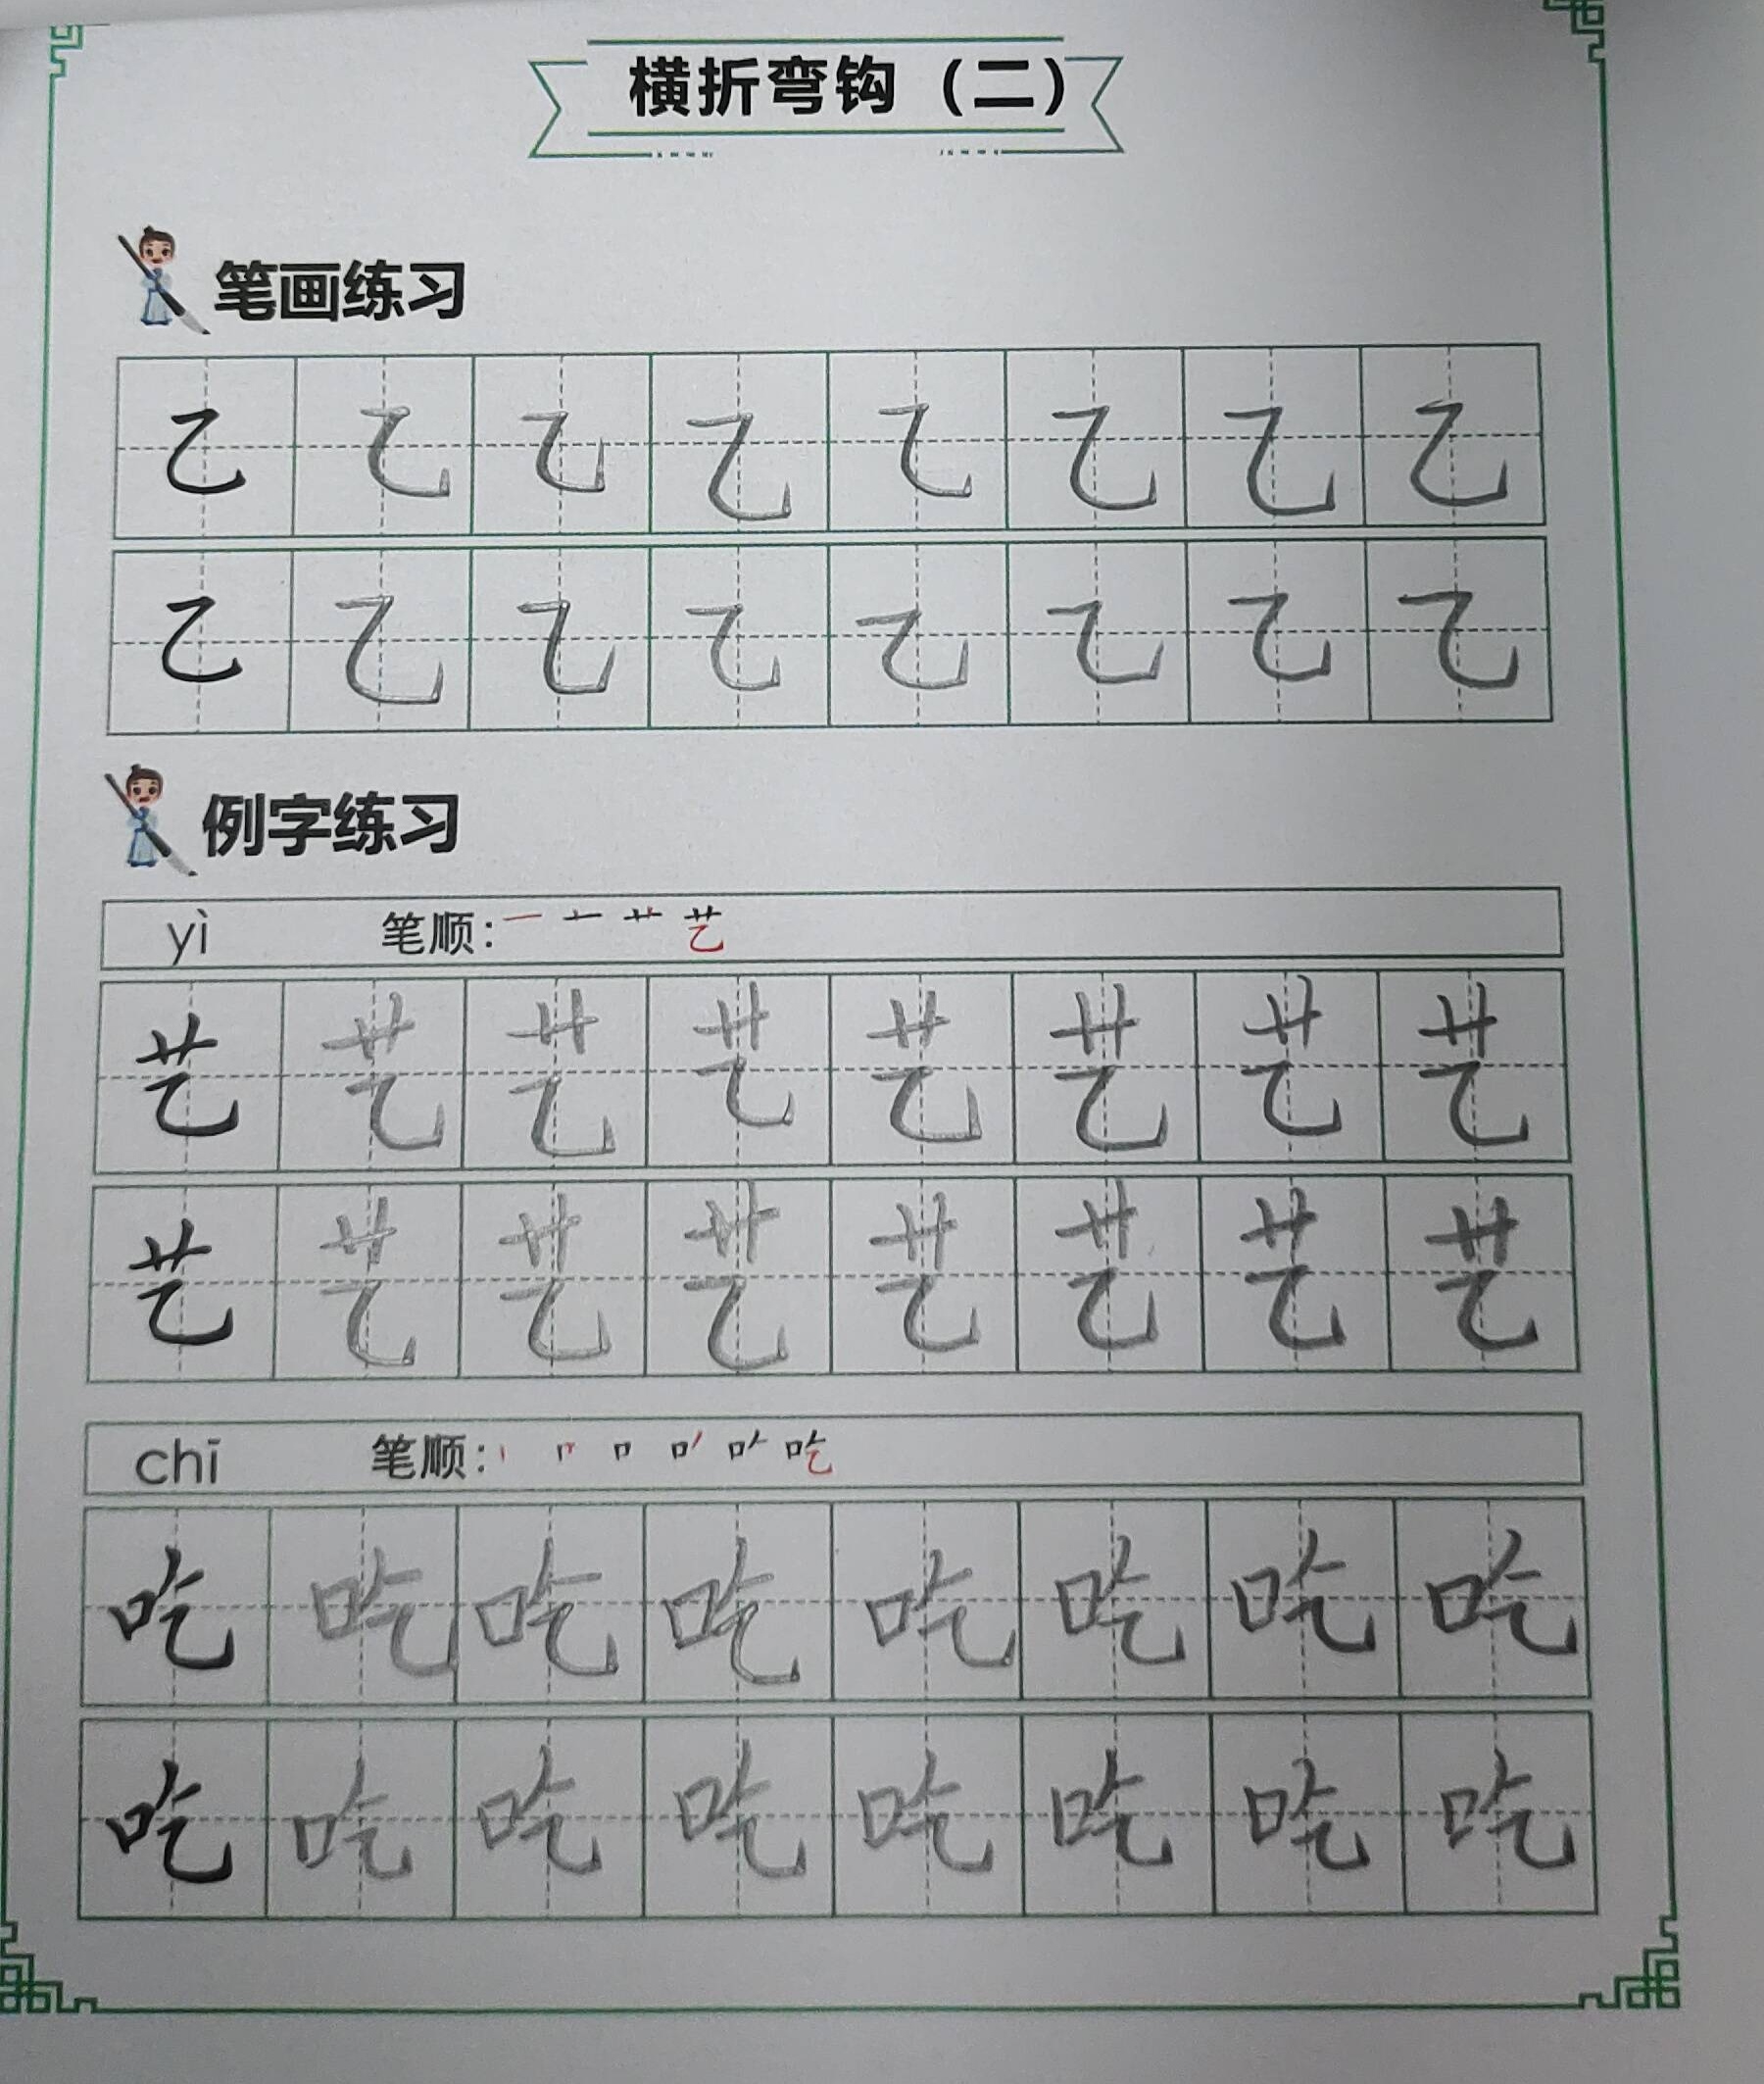 横折弯钩（二）
笔画练习
乙 乙 乙 乙 乙 乙 乙 乙
乙 乙 乙 乙 乙 乙 乙 乙
例字练习
yì 笔顺： 一 艺
艺 艺 艺 艺 艺 艺 艺 艺
艺 艺 艺 艺 艺 艺 艺 艺
chī 笔顺： 丨 口 吃
吃 吃 吃 吃 吃 吃 吃 吃
吃 吃 吃 吃 吃 吃 吃 吃